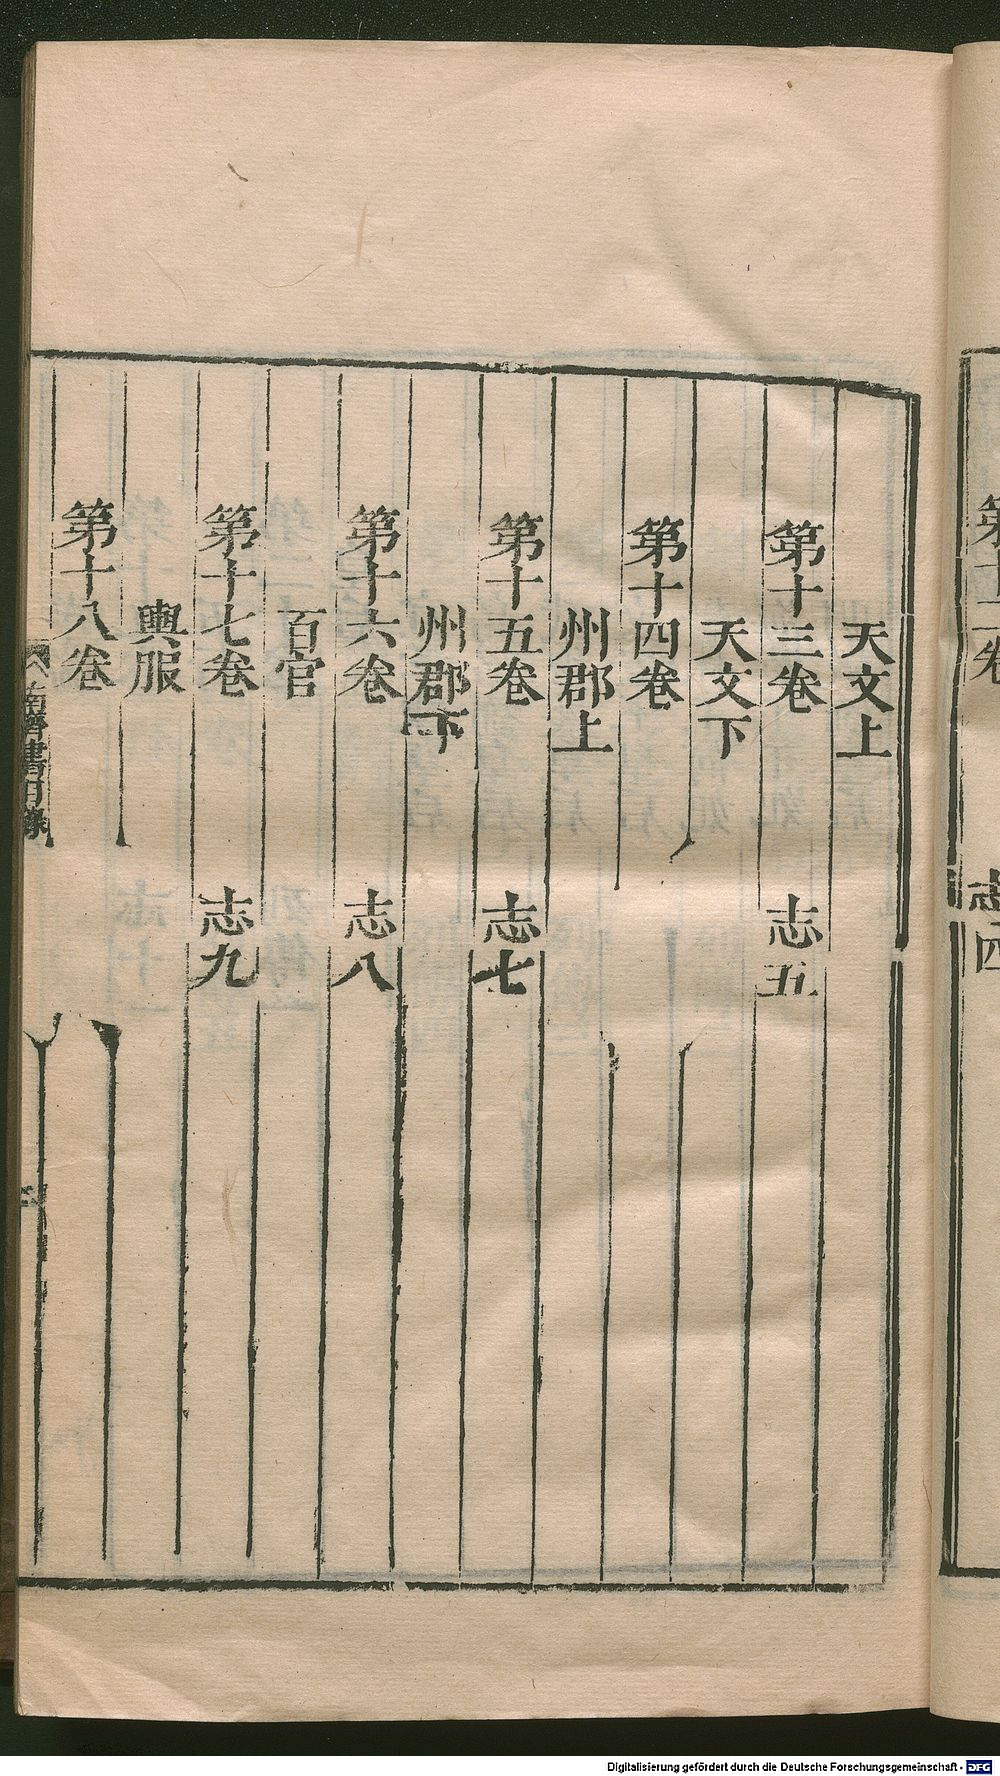 第十二卷 志四
天文上
第十三卷 志五
天文下
第十四卷
州郡上
第十五卷 志七
州郡下
第十六卷 志八
百官
第十七卷 志九
輿服
第十八卷
南齊書目錄
Digitalisierung gefördert durch die Deutsche Forschungsgemeinschaft - DFG